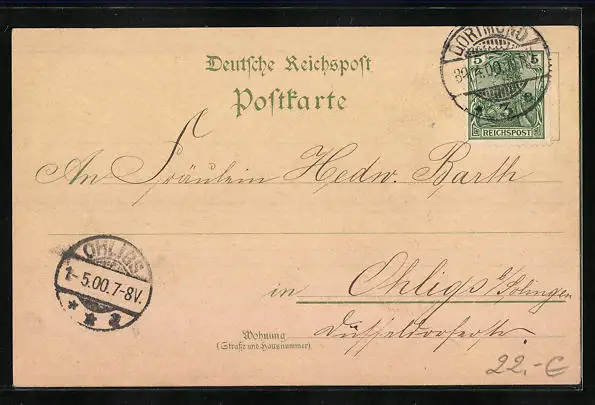 Deutsche Reichspost
Postkarte
DORTMUND
4.00.
3 e
5 5
REICHSPOST
An Fräulein Hedw. Barth
OHLIGS
1-5.00.7-8V.
* 2 *
in Ohligs b/Solingen
Wohnung
(Straße und Hausnummer)
Düsseldorferstr.
22,-€